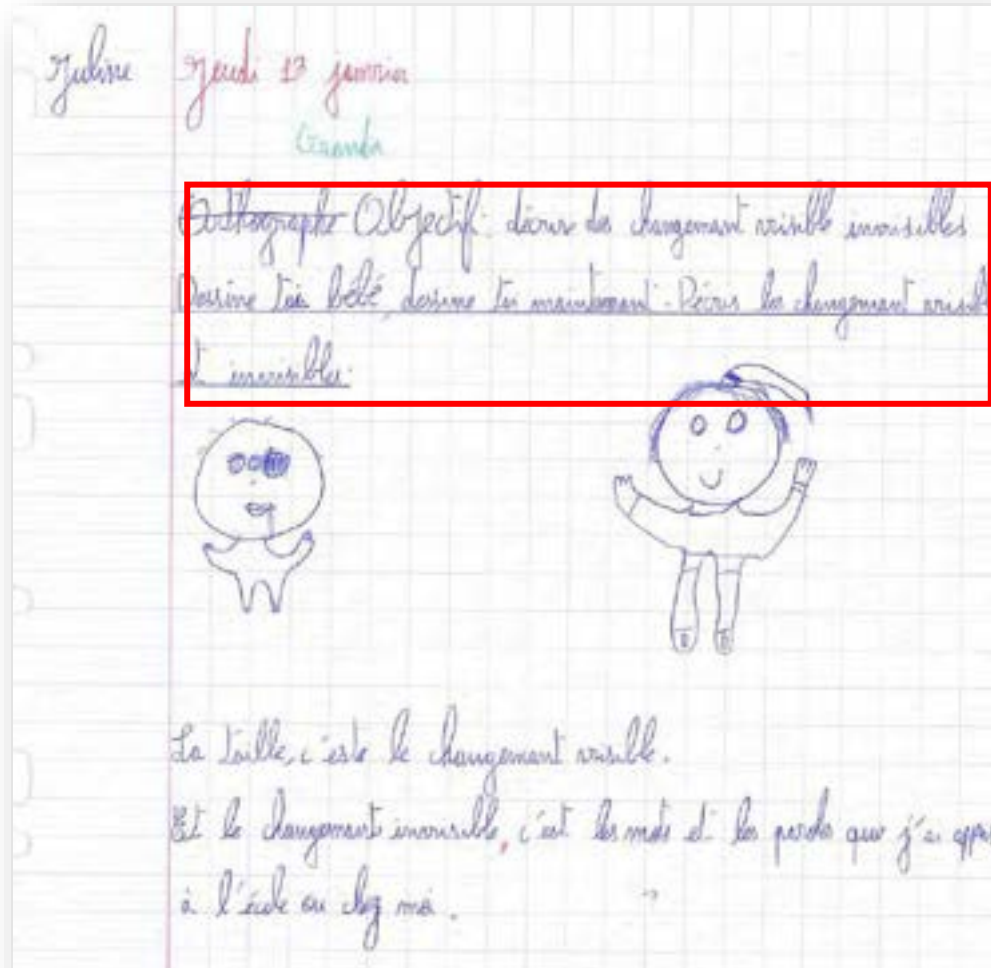 Juline Jeudi 13 janvier
Grandir
Orthographe Objectif: décrire des changement visible invisibles
Dessine toi bébé, dessine toi maintenant. Décris les changement visib
et invisibles.
La taille, c'este le changement visible.
Et le changement invisible, c'est les mots et les parols que j'ai appri
à l'école ou chez moi.